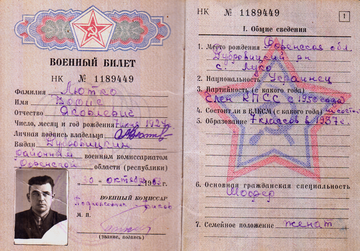 ВОЕННЫЙ БИЛЕТ
НК № 1189449
Фамилия Лютко
Имя Борис
Отчество
Число, месяц и год рождения
Личная подпись владельца
Выдан Дубровицким
районным военным комиссариатом
Ровенской области (республики)
октября
ВОЕННЫЙ КОМИССАР
М. П.
(звание, подпись)
НК № 1189449
1
I. Общие сведения
1. Место рождения Ровенская обл.
Дубровицкий рн
с.
2. Национальность Украинец
3. Партийность (с какого года)
член КПСС с
4. Состоит в ВЛКСМ (с какого года)
5. Образование 7 классов в 1937 г.
6. Основная гражданская специальность
Шофер
7. Семейное положение женат